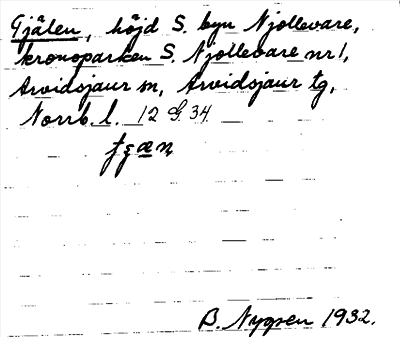 Gjälen, höjd S. byn Njallevare,
kronoparken S. Njallevare nr 1,
Arvidsjaur sn, Arvidsjaur tg,
Norrb. l. 12 G. 34.
B. Nygren 1932.